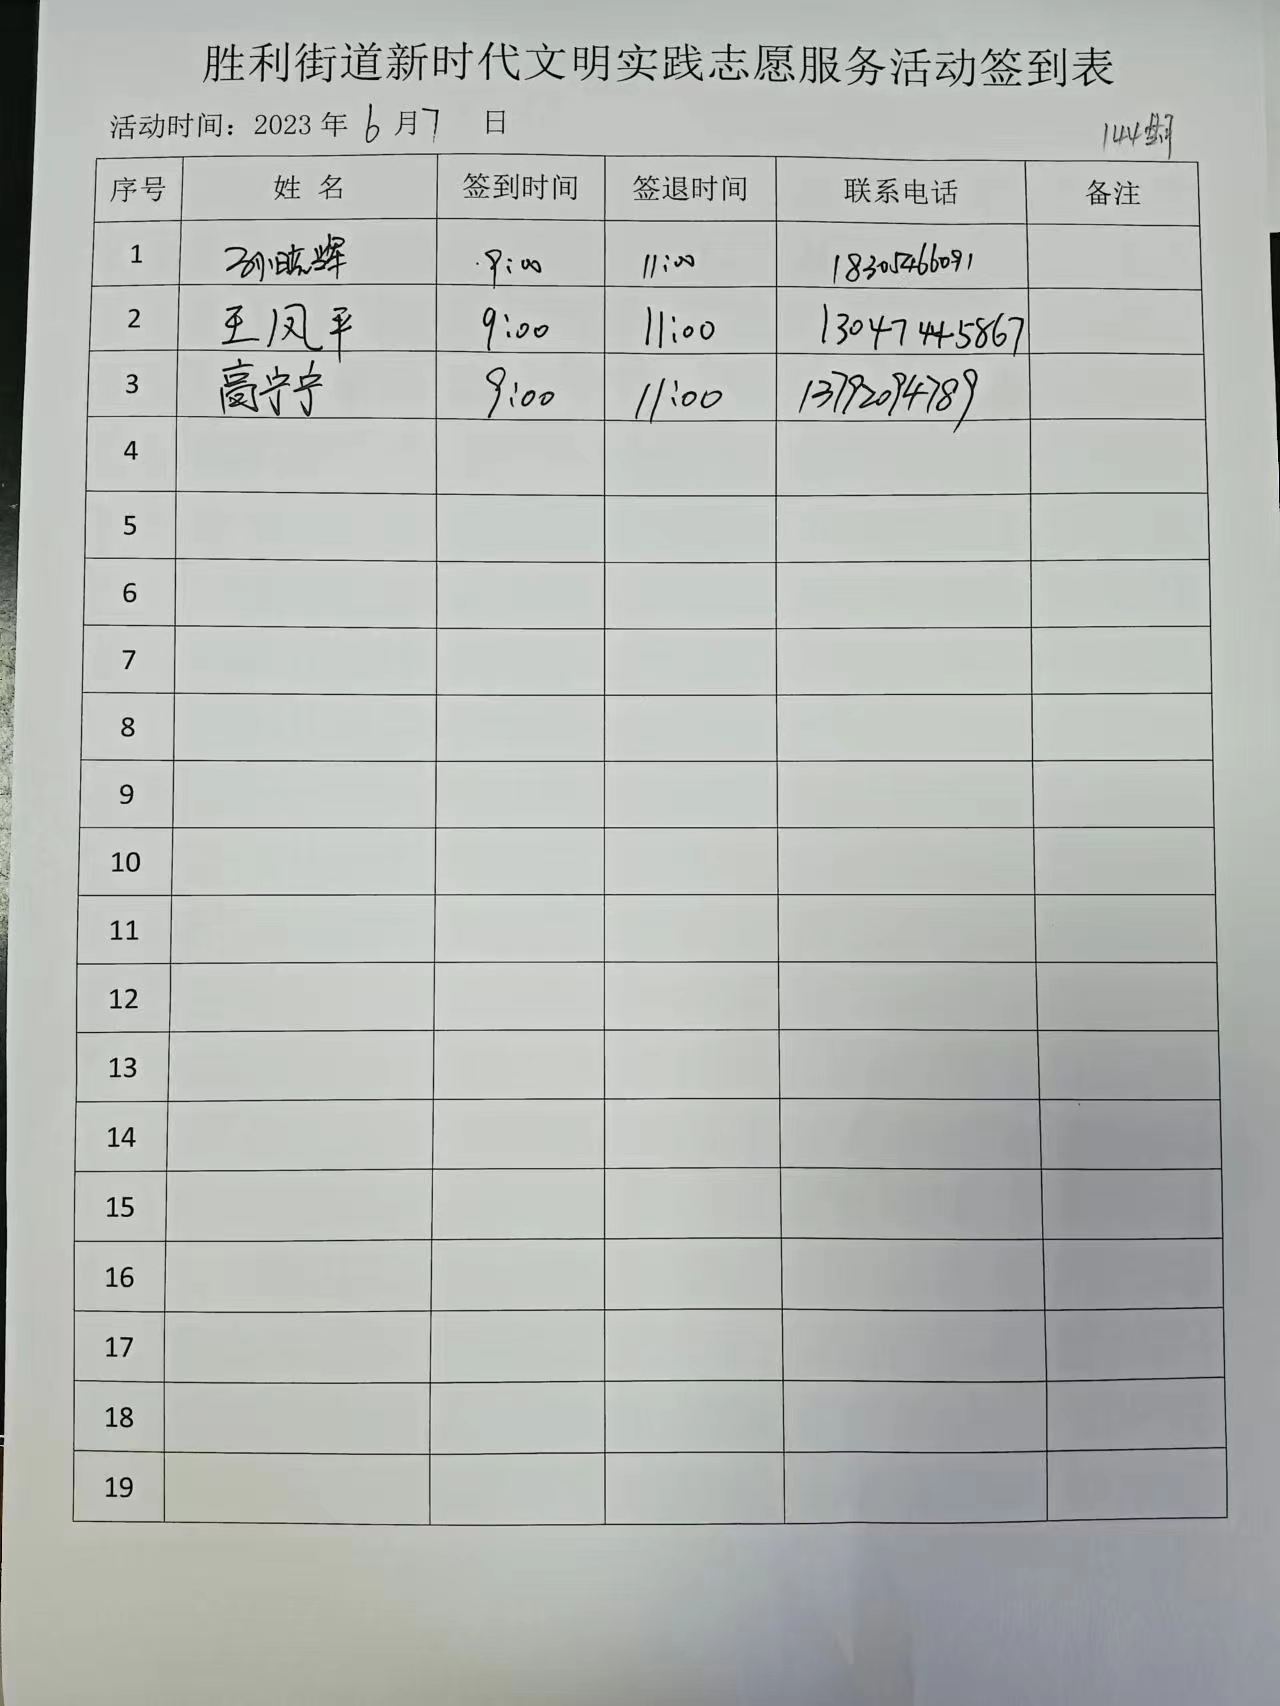 胜利街道新时代文明实践志愿服务活动签到表
活动时间：2023 年 6 月 7 日
144
序号 姓 名 签到时间 签退时间 联系电话 备注
1 孙晓辉 9:00 11:00 18305466091
2 王凤平 9:00 11:00 13047445867
3 高宁宁 9:00 11:00 13792094789
4
5
6
7
8
9
10
11
12
13
14
15
16
17
18
19